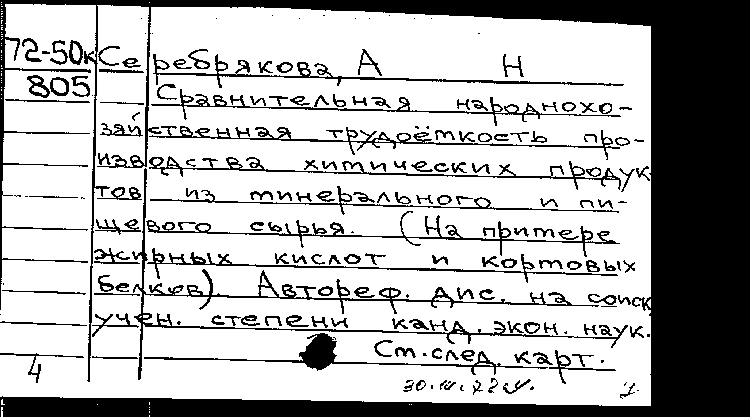 72-50к
805
Серебрякова, А Н
Сравнительная народнохо-
зяйственная трудоёмкость про-
изводства химических продук-
тов из минерального и пи-
щевого сырья. (На примере
жирных кислот и кортовых
белков). Автореф. дис. на соиск
учен. степени канд. экон. наук.
См. след. карт.
4